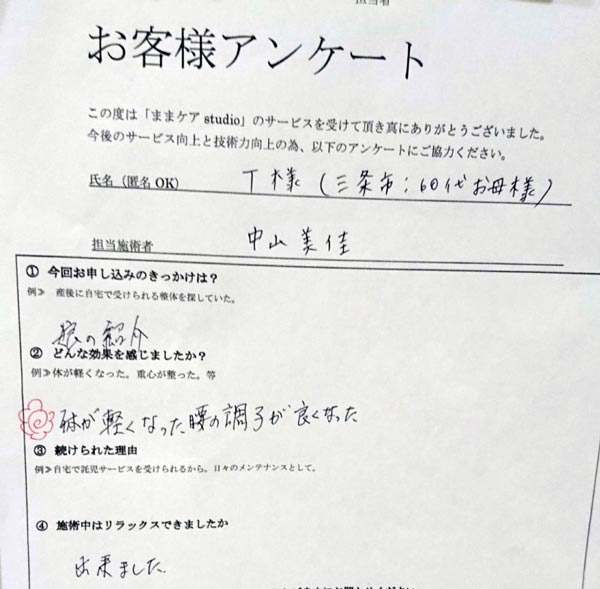 担当者
お客様アンケート
この度は「ままケア studio」のサービスを受けて頂き真にありがとうございました。
今後のサービス向上と技術力向上の為、以下のアンケートにご協力ください。
氏名（匿名 OK） T様（三条市：60代お母様）
担当施術者 中山美佳
① 今回お申し込みのきっかけは？
例≫ 産後に自宅で受けられる整体を探していた。
娘の紹介
② どんな効果を感じましたか？
例≫体が軽くなった。重心が整った。等
体が軽くなった腰の調子が良くなった
③ 続けられた理由
例≫自宅で託児サービスを受けられるから。日々のメンテナンスとして。
④ 施術中はリラックスできましたか
出来ました